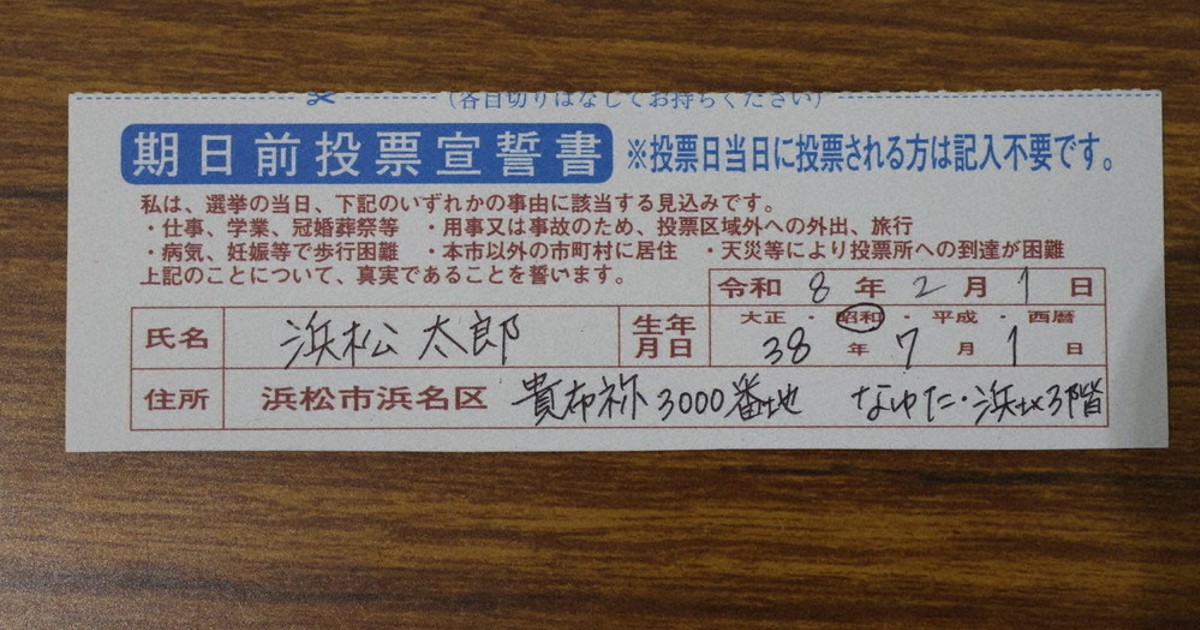 (各自切りはなしてお持ちください)
期日前投票宣誓書 ※投票日当日に投票される方は記入不要です。
私は、選挙の当日、下記のいずれかの事由に該当する見込みです。
・仕事、学業、冠婚葬祭等 ・用事又は事故のため、投票区域外への外出、旅行
・病気、妊娠等で歩行困難 ・本市以外の市町村に居住 ・天災等により投票所への到達が困難
上記のことについて、真実であることを誓います。
令和 8 年 2 月 1 日
氏名 浜松 太郎 生年月日 大正・昭和・平成・西暦
38 年 7 月 1 日
住所 浜松市浜名区 貴布祢3000番地 なゆた・浜北3階